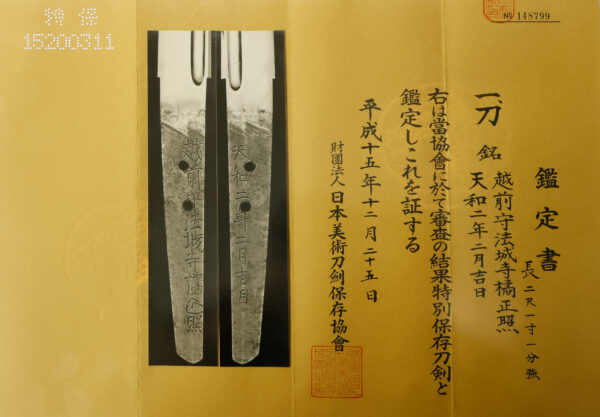 № 148799
鑑定書
一、刀 銘 越前守法城寺橘正照
天和二年二月吉日
長二尺一寸一分強
右は當協會に於て審査の結果特別保存刀剣と
鑑定しこれを証する
平成十五年十二月二十五日
財團法人 日本美術刀劍保存協會
天和二年二月吉日
越前守法城寺橘正照
特保
15200311